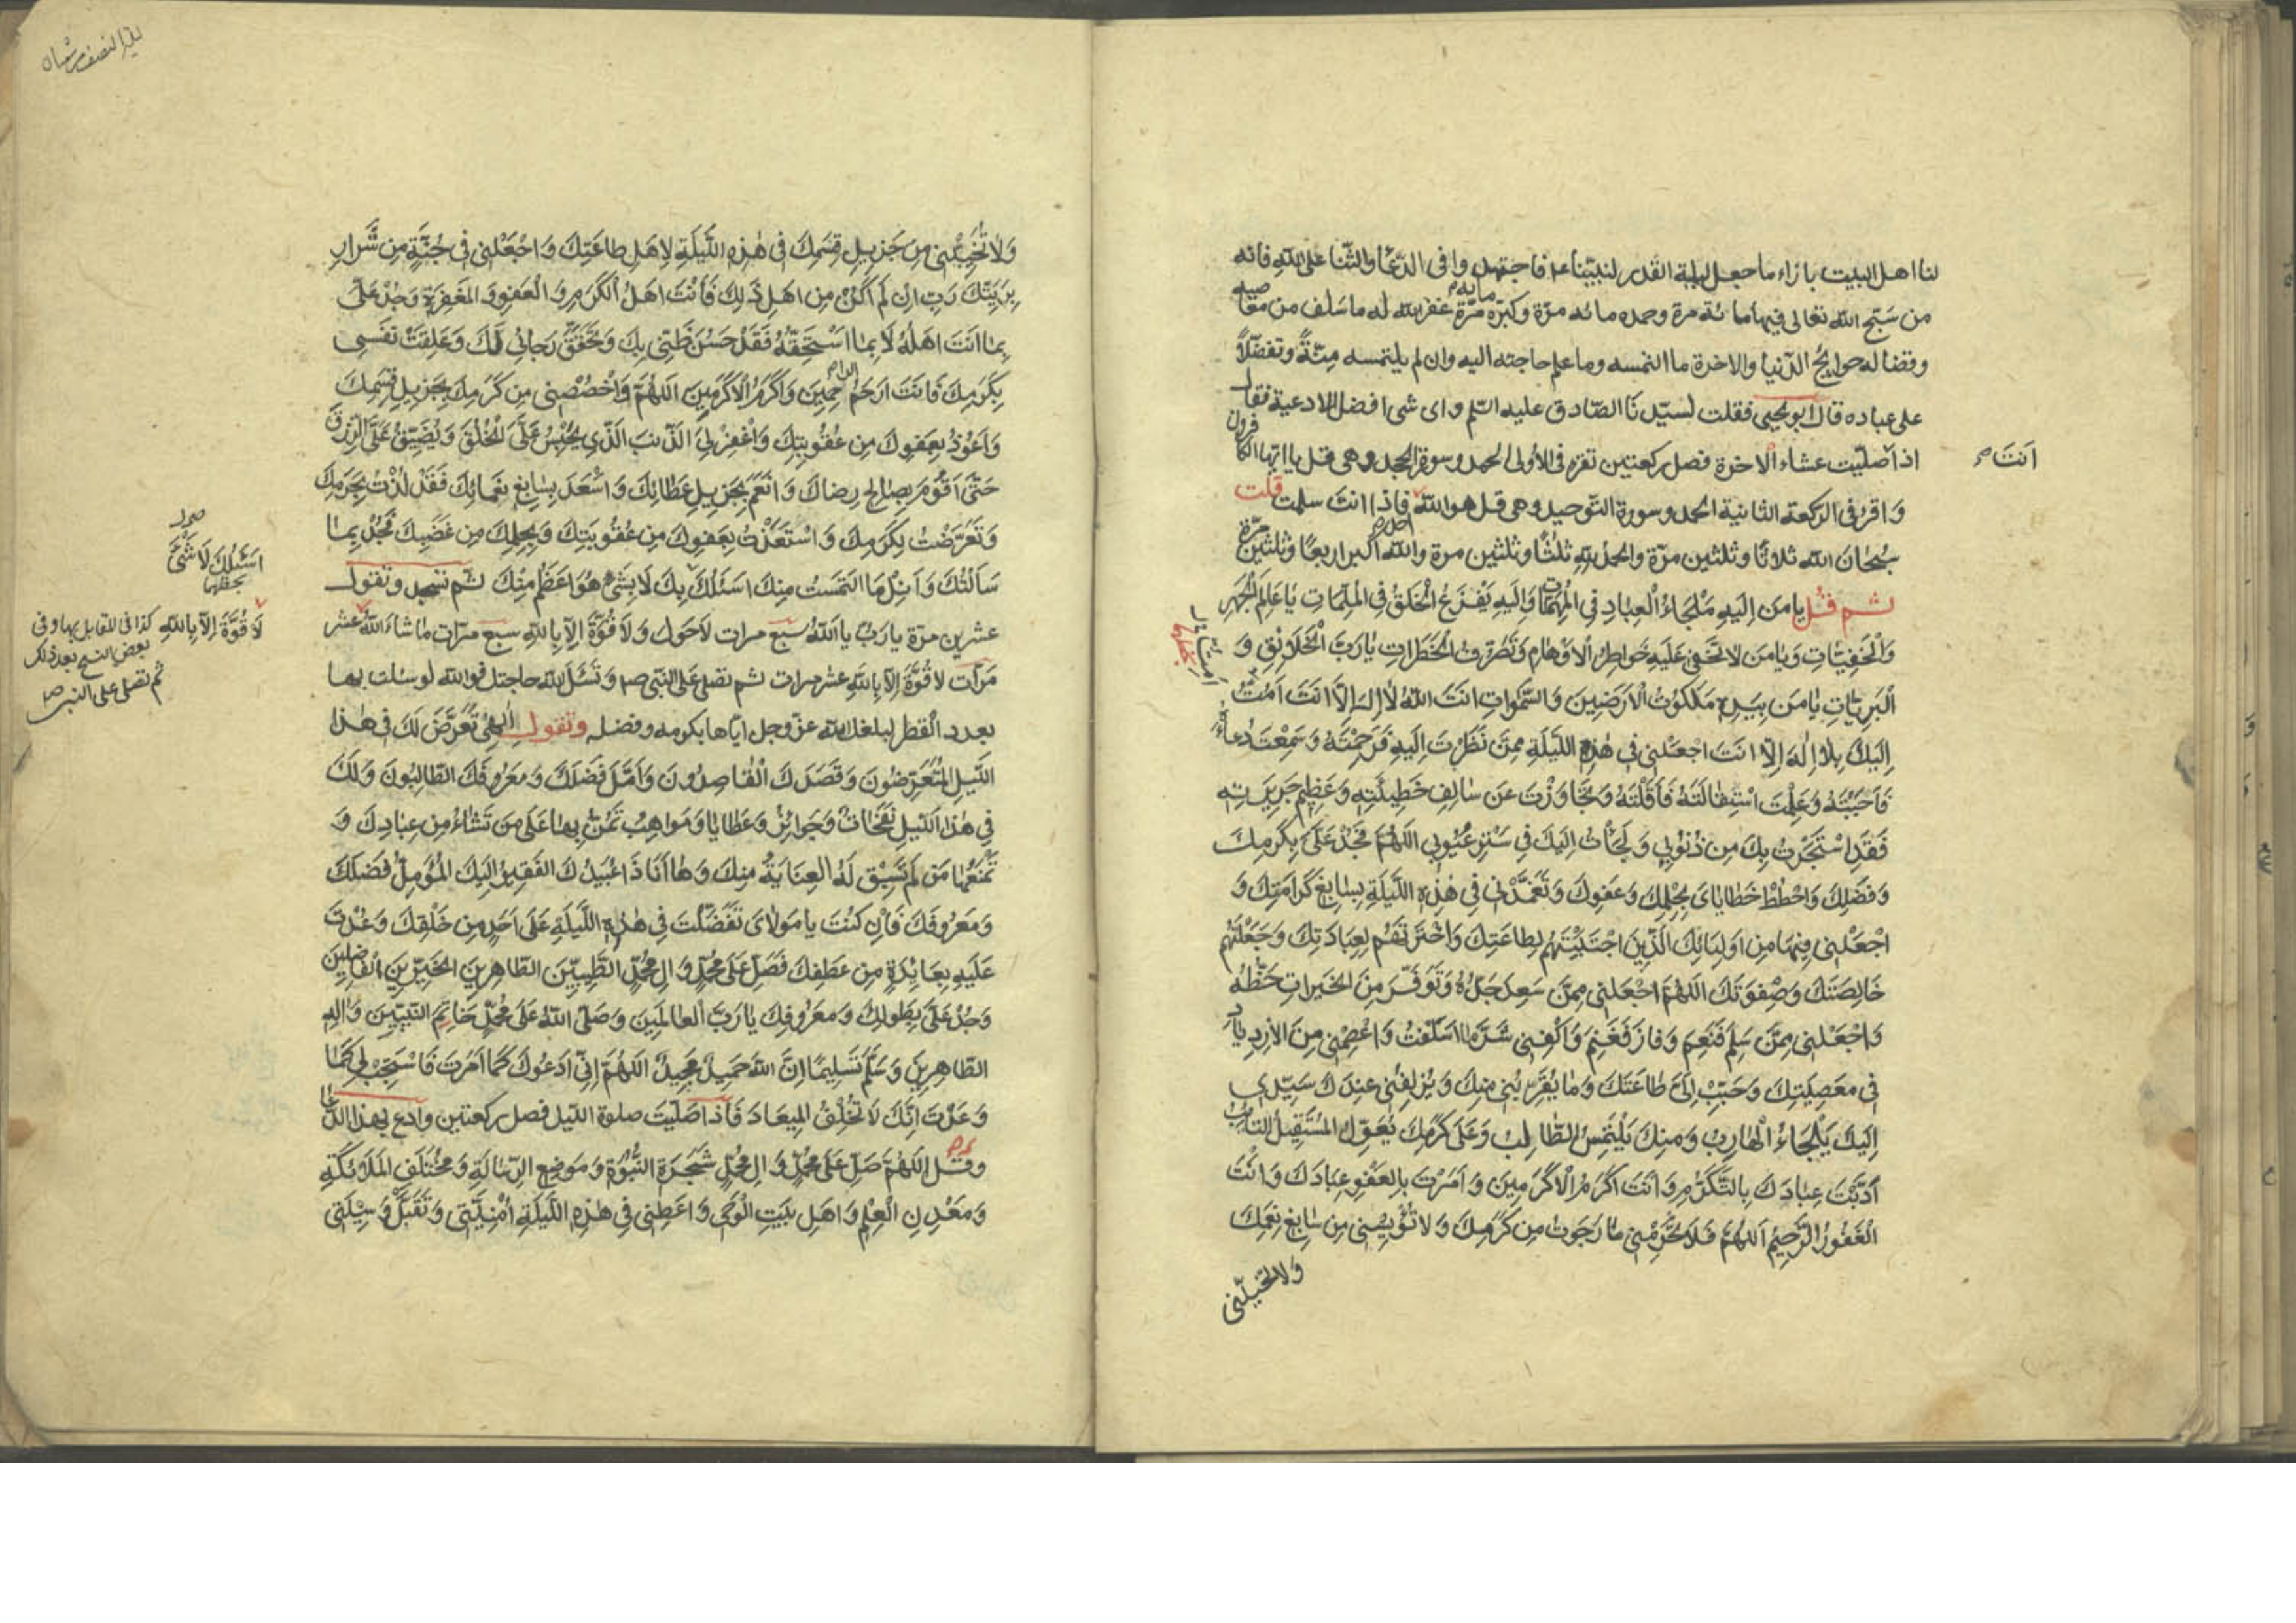 لنا اهل البيت بازاء ما جعل ليلة القدر لنبيّنا ع‍ فاجتهدوا فى الدّعا والثّنا على الله فانه
من سَبّح الله تعالى فيها مائة مرة وحمده مائه مرّة وكبّره مايه مرّة غفر الله له ما سَلف من معاصيه
وقضا له حوايج الدّنيا والاخرة ما التمسه وما علم حاجته اليه وان لم يلتمسه مِنّةً وتفضّلاً
على عباده قال ابو يحيى فقلت لسيّدنَا الصّادق عليه السّلم واى شى افضل الادعية فقال
اذا صلّيت عشاء الاخرة فصل ركعتين تقرء فى الأولى الحمد وسورة الجحد وهى قل يا ايّها الكافرون
انتَ
وَاقرء فى الركعة الثانية الحمد وسورة التّوحيد وهى قل هو الله احد فاذا انتَ سلمت قلت
سُبحَانَ الله ثلاثًا وثلثين مرّة والحمدُ للهِ ثلثًا وثلثين مرة والله اكبر اربعًا وثلثين مرّة
ثم قُل يا مَن اِلَيهِ مَلْجَاءُ الْعِبادِ فِي الْمُهِمّاتِ وَاِلَيهِ يَفْزَعُ الْخَلقُ فِي الْمُلِمّاتِ يَا عَالِمَ الْجَهرِ
وَالْخَفِيّاتِ وَيا مَن لا تَخفى عَلَيهِ خَواطِرُ الاَوْهامِ وَتَصَرُّفُ الْخَطَراتِ يا رَبَّ الْخَلائِقِ وَ
الْبَرِيّاتِ يا مَن بِيَدِهِ مَلَكوُتُ الاَرَضينَ وَالسَّمَواتِ انتَ اللهُ لا اِلهَ اِلاّ انتَ اَمُتُّ
اِلَيكَ بِلا اِلهَ اِلاّ انتَ اجعَلنى في هٰذِهِ اللَّيلَةِ مِمَّن نَظَرْتَ اِلَيهِ فَرَحِمْتَهُ وَسَمِعْتَ دُعاءَهُ
فَاَجَبْتَهُ وَعَلِمْتَ اسْتِقالَتَهُ فَاَقَلْتَهُ وَتَجاوَزْتَ عَن سالِفِ خَطيئَتِهِ وَعَظيمِ جَريرَتِهِ
فَقَدِ اسْتَجَرْتُ بِكَ مِن ذُنُوبي وَلَجَأتُ اِلَيكَ في سَتْرِ عُيُوبي اللهُمَّ فَجُدْ عَلَيَّ بِكَرَمِكَ
وَفَضلِكَ وَاحْطُطْ خَطاياىَ بِحِلمِكَ وَعَفوِكَ وَتَغَمَّدْنى في هٰذِهِ اللَّيلَةِ بِسابِغِ كَرامَتِكَ وَ
اجْعَلْنى فيها مِن اَولِيائِكَ الَّذينَ اجْتَبَيْتَهُم لِطاعَتِكَ وَاخْتَرتَهُم لِعِبادَتِكَ وَجَعَلتَهُم
خالِصَتَكَ وَصِفوَتَكَ اللهُمَّ اجْعَلنى مِمَّن سَعِدَ جَدُّهُ وَتَوَفَّرَ مِنَ الخَيراتِ حَظُّهُ
وَاجْعَلنى مِمَّن سَلِمَ فَنَعِمَ وَفازَ فَغَنِمَ وَاكْفِنى شَرَّ ما اسلَفتُ وَاعْصِمْنى مِنَ الاِزدِيادِ
في مَعصِيَتِكَ وَحَبِّبْ اِلَىَّ طاعَتَكَ وَما يُقَرِّبُنى مِنكَ وَيُزلِفُنى عِندَكَ سَيّدي
اِلَيكَ يَلْجَاءُ الْهارِبُ وَمِنكَ يَلْتَمِسُ الطّالِبُ وَعَلى كَرَمِكَ يُعَوِّلُ المُستَقيلُ التائبُ
اَدَّبْتَ عِبادَكَ بِالتَّكَرُّمِ وَانتَ اكرَمُ الاكرَمينَ وَامَرْتَ بِالعَفوِ عِبادَكَ وَانتَ
الْغَفُورُ الرَّحيمُ اللهُمَّ فَلا تَحْرِمْنى ما رَجَوتُ مِن كَرَمِكَ وَلا تُؤيِسْنى مِن سابِغِ نِعَمِكَ
وَلا تُخَيِّبْنى
ليلة النصف من شعبان
وَلا تُخَيِّبْنى مِن جَزيلِ قِسَمِكَ فى هٰذِهِ اللَّيلَةِ لِاَهلِ طاعَتِكَ وَاجْعَلْنى فى جُنَّةٍ مِن شِرارِ
بَرِيَّتِكَ رَبِّ اِن لَم اَكُنْ مِن اهلِ ذلِكَ فَاَنتَ اهلُ الكَرَمِ وَالعَفوِ وَالمَغفِرَةِ وَجُدْ عَلَىَّ
بِما انتَ اهلُهُ لا بِما اسْتَحِقُّهُ فَقَدْ حَسُنَ ظَنّى بِكَ وَتَحَقَّقَ رَجائى لَكَ وَعَلِقَتْ نَفسى
بِكَرَمِكَ فَانتَ ارحَمُ الراحِمينَ وَاكرَمُ الاكرَمينَ اللهُمَّ وَاخْصُصْنى مِن كَرَمِكَ بِجَزيلِ قِسَمِكَ
وَاَعُوذُ بِعَفوِكَ مِن عُقُوبَتِكَ وَاغْفِرْ لِىَ الذَّنبَ الَّذى يَحْبِسُ عَلَىَّ الخُلُقَ وَيُضَيِّقُ عَلَىَّ الرِّزقَ
حَتّى اَقُومَ بِصالِحِ رِضاكَ وَاَنْعَمَ بِجَزيلِ عَطائِكَ وَاَسْعَدَ بِسابِغِ نَعمائِكَ فَقَدْ لُذْتُ بِحَرَمِكَ
وَتَعَرَّضتُ لِكَرَمِكَ وَاسْتَعَذْتُ بِعَفوِكَ مِن عُقُوبَتِكَ وَبِحِلمِكَ مِن غَضَبِكَ فَجُدْ بِما
سَاَلتُكَ وَاَنِلْ مَا التَمَستُ مِنكَ اسئَلُكَ بِكَ لا بِشَىءٍ هُوَ اعظَمُ مِنكَ ثم تسجد وتقول
عشرين مرّة يا ربّ يا اللهُ سبع مرات لا حَولَ وَلا قُوَّةَ اِلّا بِاللهِ سبع مرّات ما شاءَ اللهُ عشر
مَرّات لا قُوَّةَ اِلّا بِاللهِ عشر مرات ثم تصلى على النّبى ص‍ وَتَسْئَلُ الله حاجتك فوالله لو سئلت بها
بعدد القَطر لبلغك الله عزّ وجل ايّاها بكرمه وفضله وتقول اِلهى تَعَرَّضَ لَكَ فى هذا
اللَّيلِ المُتَعَرِّضُونَ وَقَصَدَكَ القاصِدُونَ وَاَمَّلَ فَضلَكَ وَمَعرُوفَكَ الطّالِبُونَ وَلَكَ
في هذَا اللَّيلِ نَفَحاتٌ وَجَوائِزُ وَعَطايا وَمَواهِبُ تَمُنُّ بِها عَلى مَن تَشاءُ مِن عِبادِكَ وَ
تَمْنَعُها مَن لَم تَسْبِق لَهُ العِنايَةُ مِنكَ وَها اَنَا ذا عُبَيدُكَ الفَقيرُ اِلَيكَ المُؤَمِّلُ فَضلَكَ
وَمَعرُوفَكَ فَاِن كُنتَ يا مَولاىَ تَفَضَّلتَ فِى هٰذِهِ اللَّيلَةِ عَلى اَحَدٍ مِن خَلقِكَ وَعُدْتَ
عَلَيهِ بِعائِدَةٍ مِن عَطفِكَ فَصَلِّ عَلى مُحَمَّدٍ وَالِ مُحَمَّدٍ الطَّيِّبينَ الطّاهِرينَ الخَيِّرينَ الفاضِلينَ
وَجُدْ عَلَىَّ بِطَولِكَ وَمَعرُوفِكَ يا رَبَّ العالَمينَ وَصَلَّى اللهُ عَلى مُحَمَّدٍ خاتَمِ النَّبِيّينَ وَالِهِ
الطّاهِرينَ وَسَلَّمَ تَسليمًا اِنَّ اللهَ حَميدٌ مَجيدٌ اللهُمَّ اِنّى اَدعُوكَ كَما اَمَرتَ فَاسْتَجِبْ لى كَما
وَعَدْتَ اِنَّكَ لا تُخْلِفُ الميعادَ فَاِذا صَلَّيتَ صلوة الليل فصل ركعتين وادع بهذا الدّعا
وقُل اللهُمَّ صَلِّ عَلى مُحَمَّدٍ وَالِ مُحَمَّدٍ شَجَرَةِ النُّبُوَّةِ وَمَوضِعِ الرِّسالَةِ وَمُختَلَفِ المَلائِكَةِ
وَمَعْدِنِ العِلْمِ وَاهلِ بَيتِ الوَحىِ وَاَعطِنى فى هٰذِهِ اللَّيلَةِ اُمْنِيَّتى وَتَقَبَّلْ وَسيلَتى
اَسئَلُكَ لا شَىءٍ
لا قُوَّةَ اِلّا بِاللهِ كذا فى المقابل بها وفى
بعض النسخ بعد ذلك
ثم تصلى على النبى ص‍